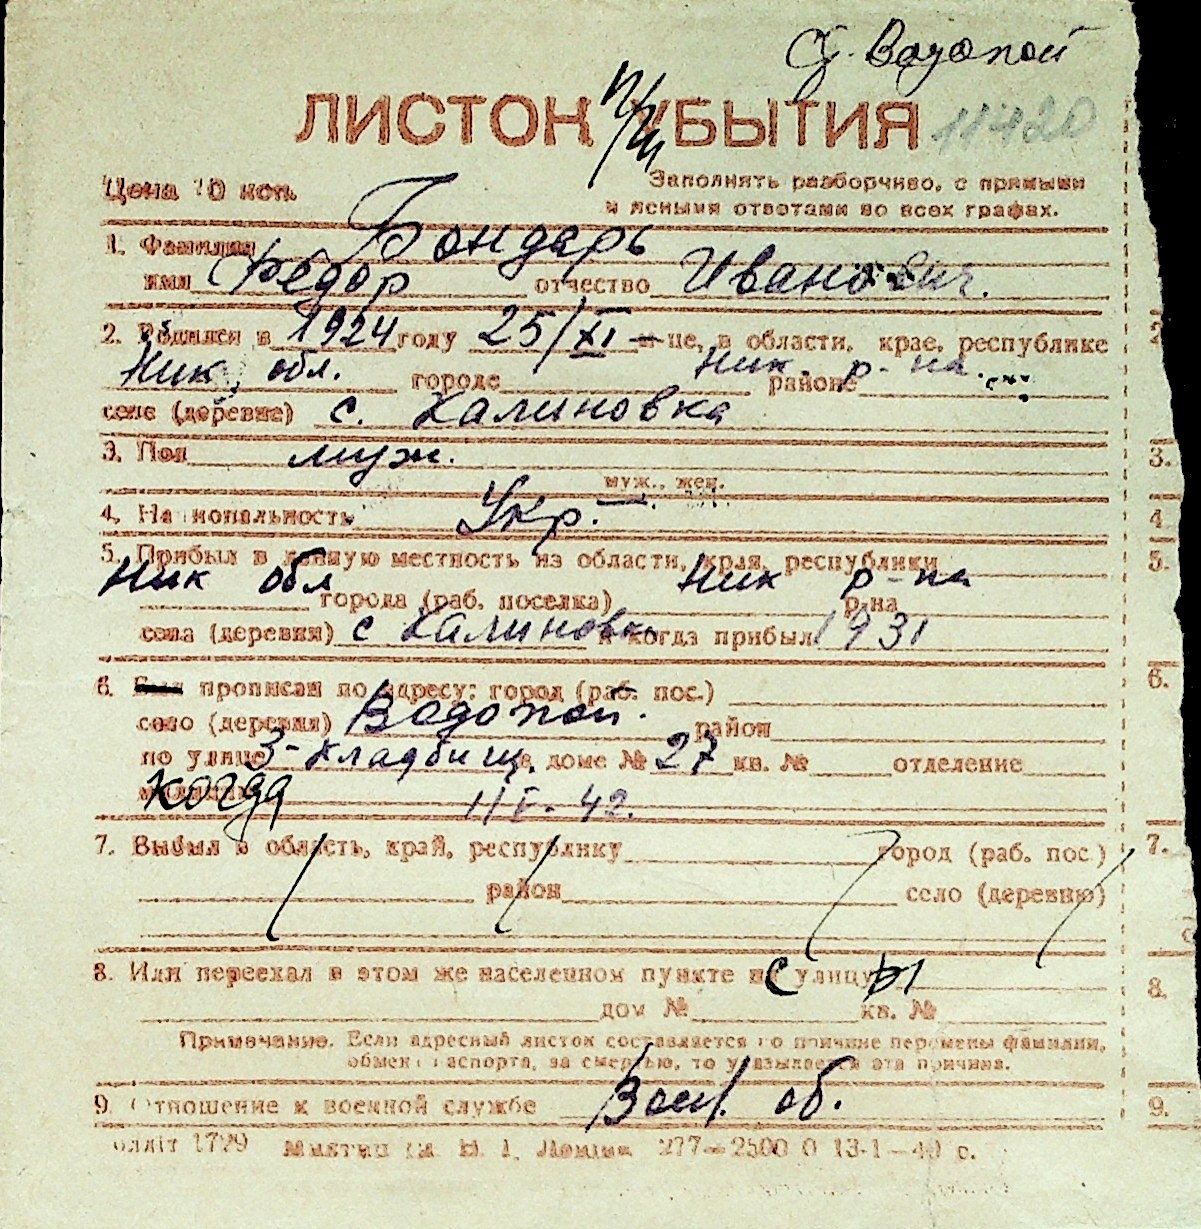 с. Водопой
ЛИСТОК УБЫТИЯ 11420
п/ч
Цена 10 коп.
Заполнять разборчиво, с прямыми
и ясными ответами во всех графах.
1. Фамилия Бондарь
имя Федор отчество Иванович.
2. Родился в 1924 году 25/XI м-це, в области, крае, республике
Ник. обл. городе Ник. р-на районе
селе (деревне) с. Калиновка
3. Пол муж.
муж., жен.
4. Национальность Укр.
5. Прибыл в данную местность из области, края, республики
Ник обл города (раб. поселка) Ник р-на р-на
села (деревни) с Калиновки и когда прибыл 1931
6. Был прописан по адресу: город (раб. пос.)
село (деревня) Водопой. район
по улице 3-Кладбищ. в доме № 27 кв. № отделение
милиции когда 1/V-42.
7. Выбыл в область, край, республику город (раб. пос.)
район село (деревню)
8. Или переехал в этом же населенном пункте на с улицу ы
дом № кв. №
Примечание. Если адресный листок составляется по причине перемены фамилии,
обмен паспорта, за смертью, то указывается эта причина.
9. Отношение к военной службе Воен. об.
1799 277—2500 0 13-1—40 с.
3.
4
5.
6.
7.
8.
9.